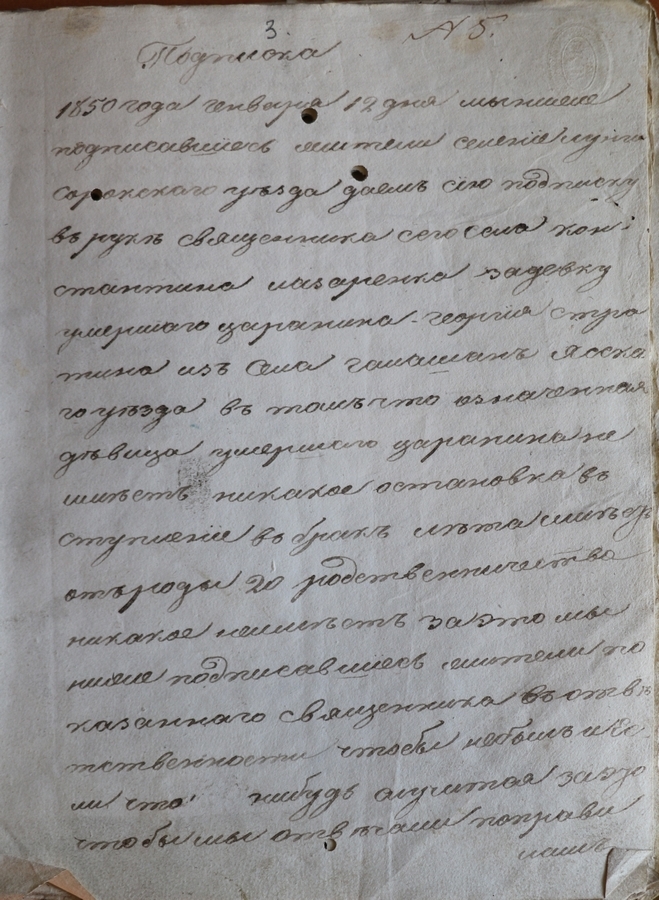 3. N 5.
Подписка
1850 года генваря 12 дня мы ниже
подписавшіесь жители селеніе
сорокского уѣзда даемъ сію подписку
въ рукѣ священника сего села кон-
стантина лазаренка за девку
умершаго царанина георгія стра
тина изъ села Яска
го уѣзда въ томъ что означенная
дѣвица умершаго царанина не
имѣетъ никакое остановка въ
ступленіе въ бракъ лѣта имѣетъ
отъ роды 20 родственничества
никакое неимѣетъ за это мы
ниже подписавшіесь жители по
казаннаго священника въ отвѣ
тственности чтобы небылъ
ли что нибудь за это
чтобы мы отвѣчали поправи
ламъ